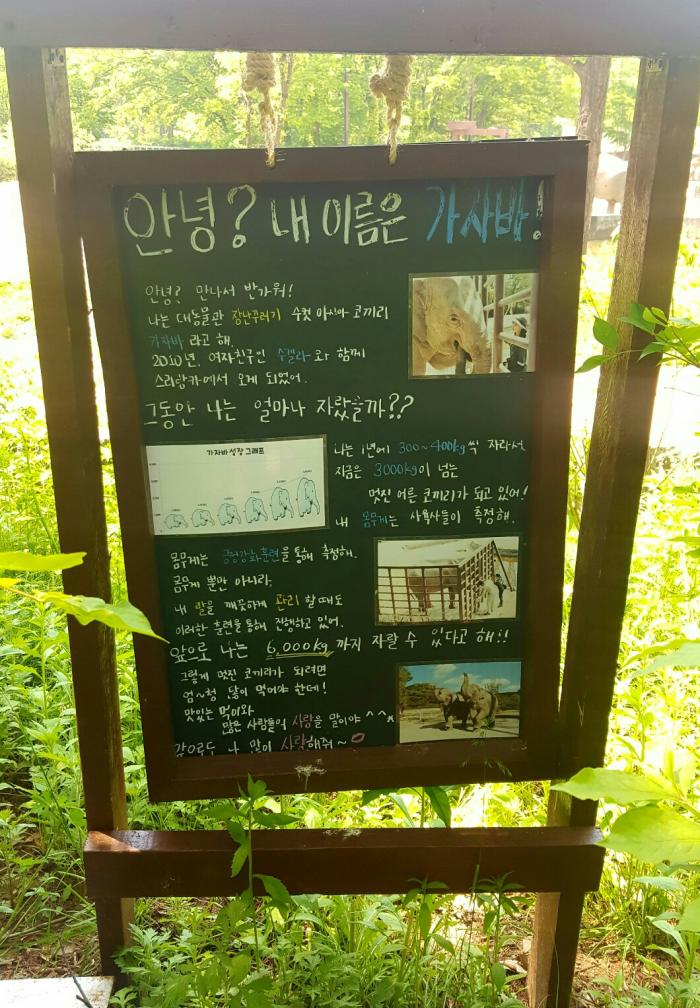 안녕? 내 이름은 가자바!
안녕? 만나서 반가워!
나는 대동물관 장난꾸러기 수컷 아시아 코끼리
가자바 라고 해.
2010년. 여자친구인 수겔라 와 함께
스리랑카에서 오게 되었어.
그동안 나는 얼마나 자랐을까??
가자바 성장 그래프
나는 1년에 300~400kg 씩 자라서
지금은 3000kg이 넘는
멋진 어른 코끼리가 되고 있어!
내 몸무게는 사육사들이 측정해.
몸무게는 긍정강화훈련을 통해 측정해.
몸무게 뿐만 아니라,
내 발을 깨끗하게 관리 할 때도
이러한 훈련을 통해 진행하고 있어.
앞으로 나는 6,000kg 까지 자랄 수 있다고 해!!
그렇게 멋진 코끼리가 되려면
엄~청 많이 먹어야 한데!
맛있는 먹이와
많은 사람들의 사랑을 말이야 ^^*
앞으로두 나 많이 사랑해줘~